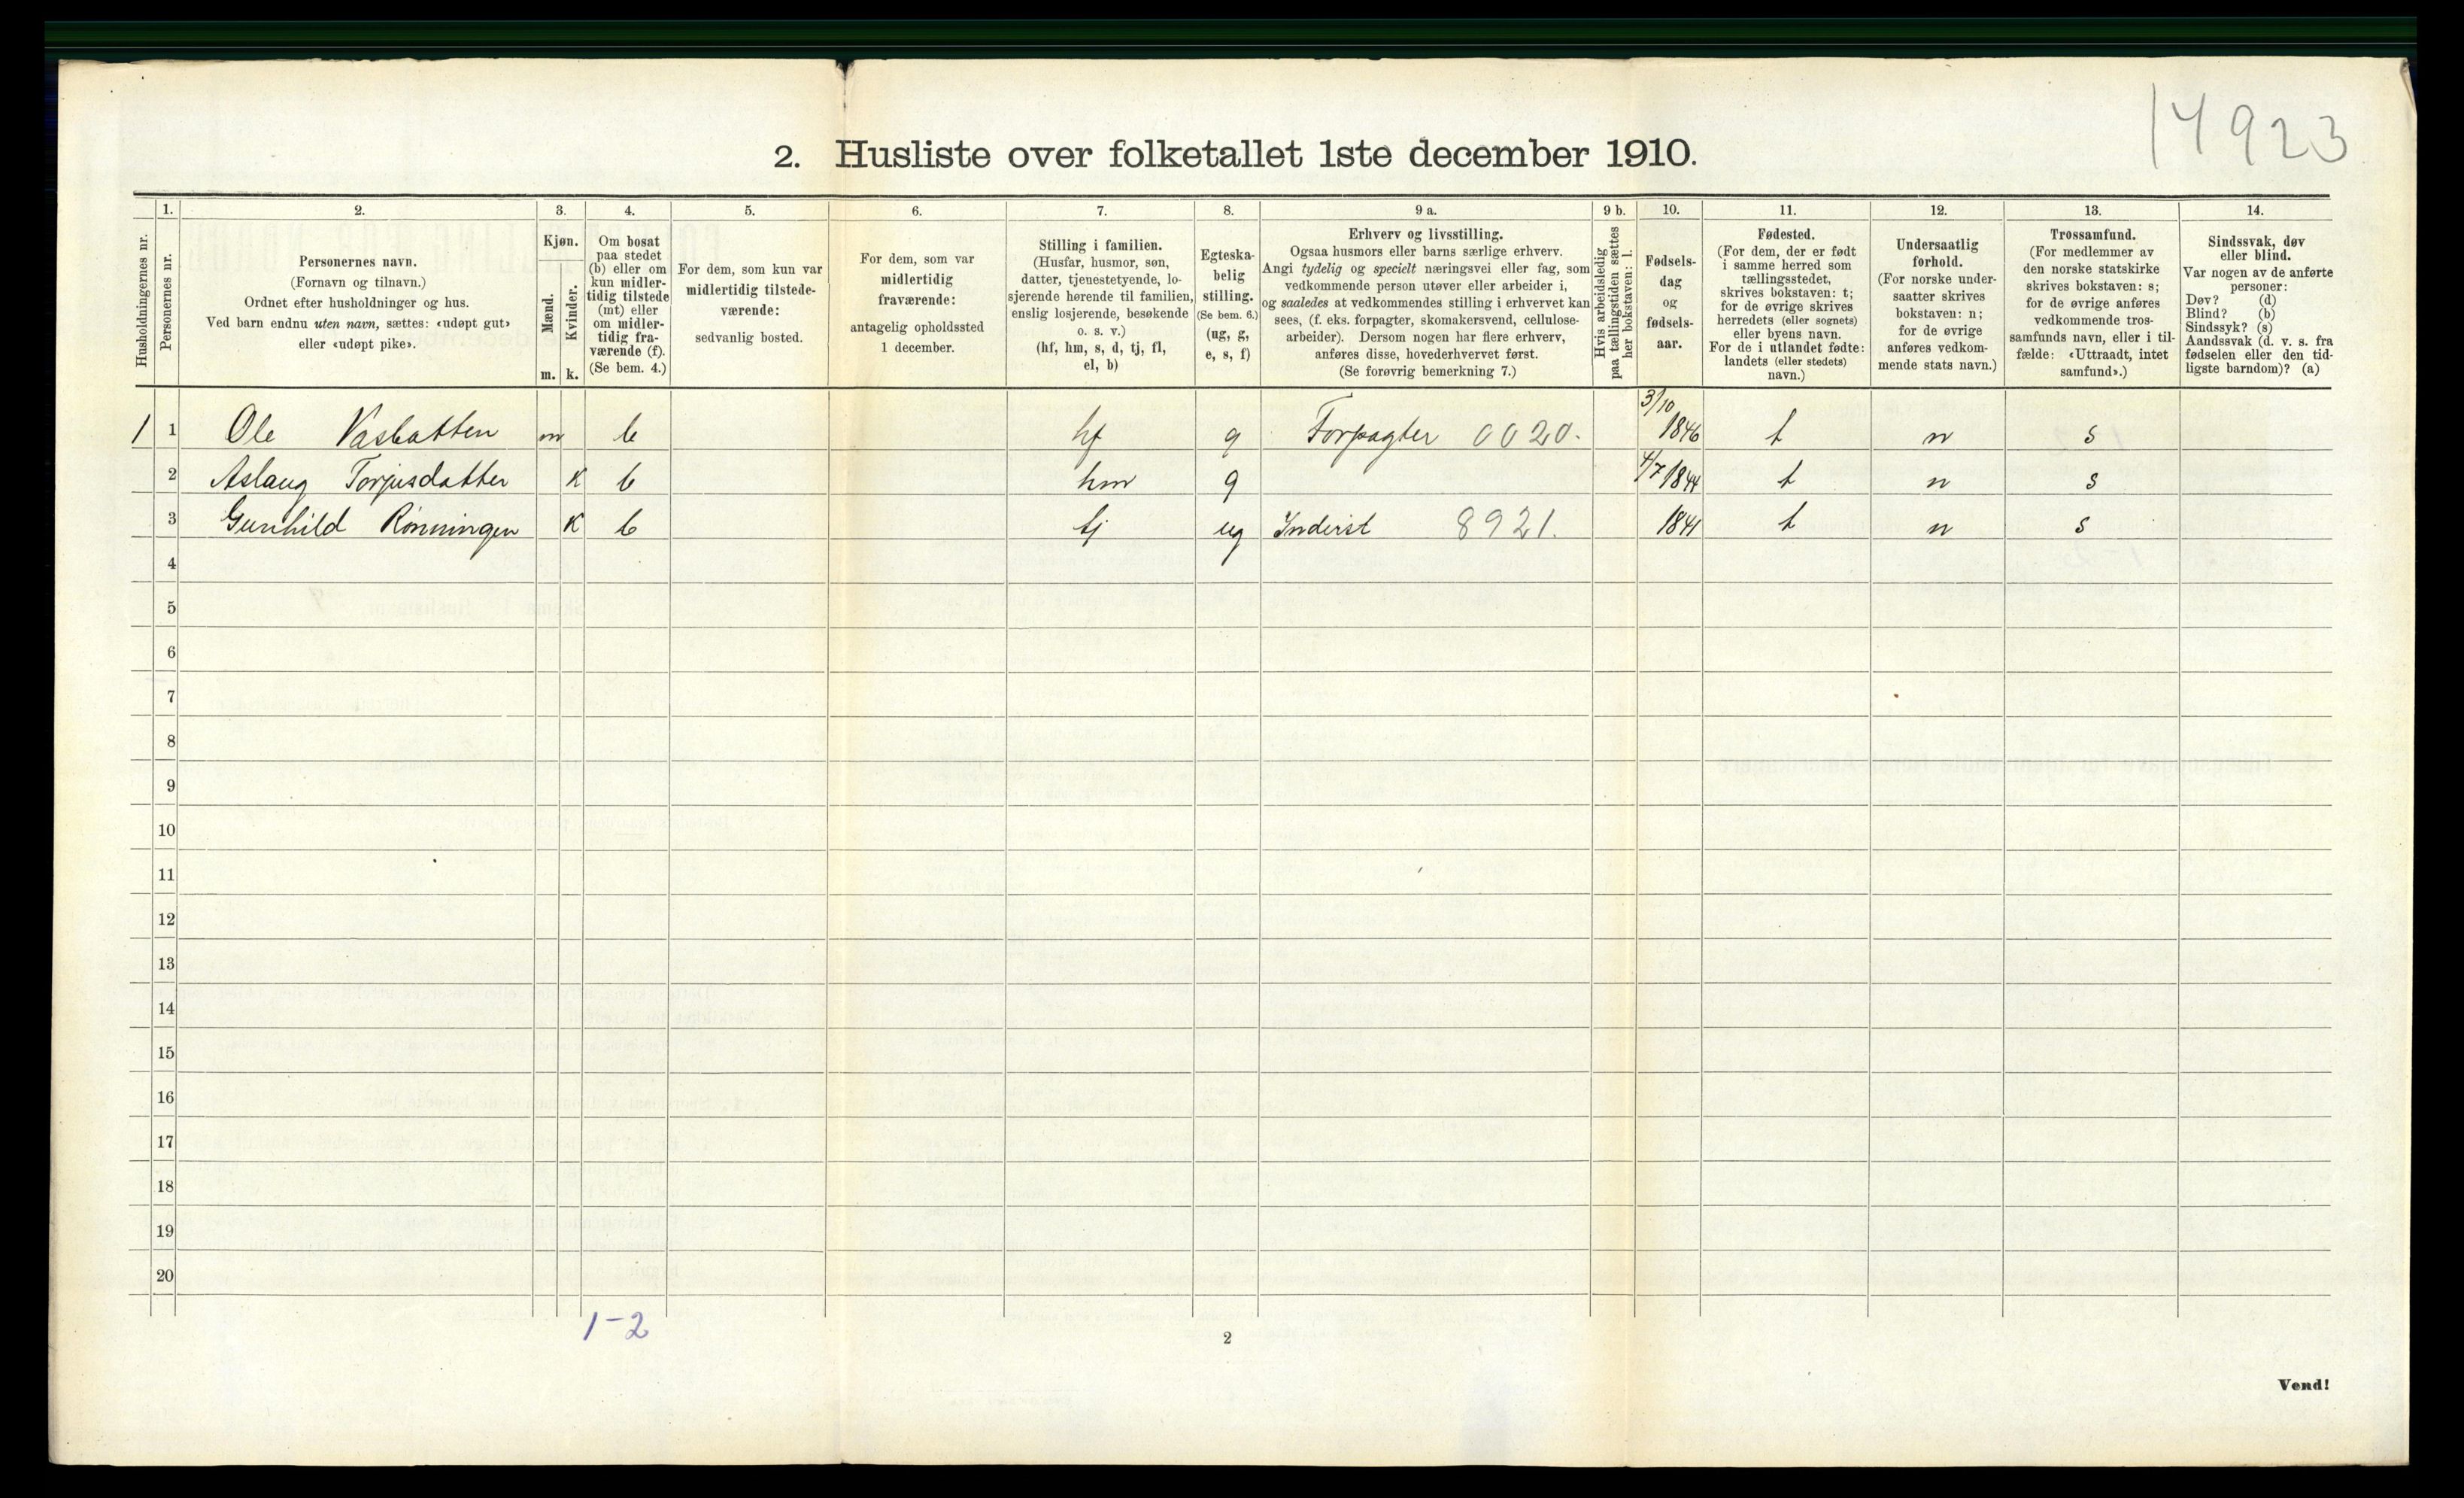 14923
2. Husliste over folketallet 1ste december 1910.
1. 2. 3. 4. 5. 6. 7. 8. 9 a. 9 b. 10. 11. 12. 13. 14.
Husholdningernes nr.
Personernes nr.
Personernes navn.
(Fornavn og tilnavn.)
Ordnet efter husholdninger og hus.
Ved barn endnu uten navn, sættes: «udøpt gut»
eller «udøpt pike».
Kjøn.
Mænd.
Kvinder.
m. k.
Om bosat
paa stedet
(b) eller om
kun midler-
tidig tilstede
(mt) eller
om midler-
tidig fra-
værende (f).
(Se bem. 4.)
For dem, som kun var
midlertidig tilstede-
værende:
sedvanlig bosted.
For dem, som var
midlertidig
fraværende:
antagelig opholdssted
1 december.
Stilling i familien.
(Husfar, husmor, søn,
datter, tjenestetyende, lo-
sjerende hørende til familien,
enslig losjerende, besøkende
o. s. v.)
(hf, hm, s, d, tj, fl,
el, b)
Egteska-
belig
stilling.
(Se bem. 6.)
(ug, g,
e, s, f)
Erhverv og livsstilling.
Ogsaa husmors eller barns særlige erhverv.
Angi tydelig og specielt næringsvei eller fag, som
vedkommende person utøver eller arbeider i,
og saaledes at vedkommendes stilling i erhvervet kan
sees, (f. eks. forpagter, skomakersvend, cellulose-
arbeider). Dersom nogen har flere erhverv,
anføres disse, hovederhvervet først.
(Se forøvrig bemerkning 7.)
Hvis arbeidsledig
paa tællingstiden sættes
her bokstaven: l.
Fødsels-
dag
og
fødsels-
aar.
Fødested.
(For dem, der er født
i samme herred som
tællingsstedet,
skrives bokstaven: t;
for de øvrige skrives
herredets (eller sognets)
eller byens navn.
For de i utlandet fødte:
landets (eller stedets)
navn.)
Undersaatlig
forhold.
(For norske under-
saatter skrives
bokstaven: n;
for de øvrige
anføres vedkom-
mende stats navn.)
Trossamfund.
(For medlemmer av
den norske statskirke
skrives bokstaven: s;
for de øvrige anføres
vedkommende tros-
samfunds navn, eller i til-
fælde: «Uttraadt, intet
samfund».)
Sindssvak, døv
eller blind.
Var nogen av de anførte
personer:
Døv? (d)
Blind? (b)
Sindssyk? (s)
Aandssvak (d. v. s. fra
fødselen eller den tid-
ligste barndom)? (a)
1 1 Ole Vasbotten m b hf g Forpagter 0020. 3/10 1846 t n s
2 Aslaug Torjusdatter K b hm g 4/7 1844 t n s
3 Gunhild Rönningen K b tj ug Inderst 8921. 1841 t n s
4
5
6
7
8
9
10
11
12
13
14
15
16
17
18
19
20
1-2
2
Vend!